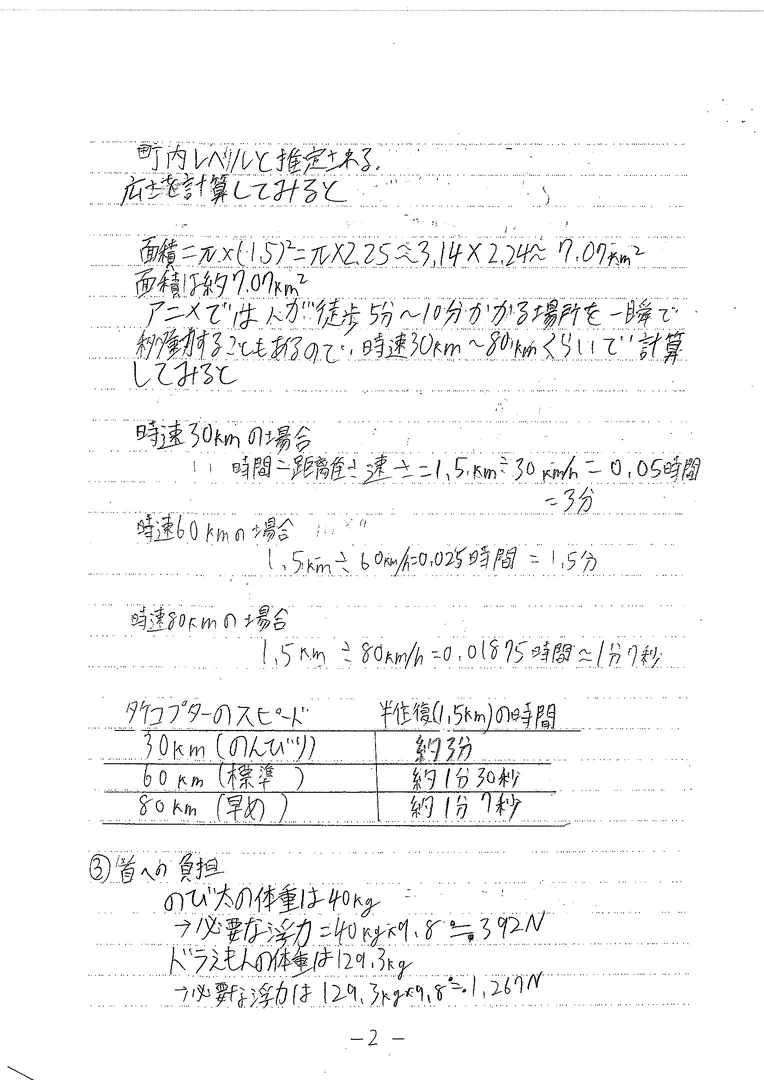 町内レベルと推定される.
広さを計算してみると
面積=π×(1.5)²=π×2.25≈3.14×2.24≈7.07km²
面積は約7.07km²
アニメでは人が徒歩5分〜10分かかる場所を一瞬で
移動することもあるので、時速30km〜80kmくらいで計算
してみると
時速30kmの場合
時間=距離÷速さ=1.5km÷30km/h=0.05時間
=3分
時速60kmの場合
1.5km÷60km/h=0.025時間=1.5分
時速80kmの場合
1.5km÷80km/h=0.01875時間≈1分7秒
タケコプターのスピード 半往復(1.5km)の時間
30km(のんびり) 約3分
60km(標準) 約1分30秒
80km(早め) 約1分7秒
③首への負担
のび太の体重は40kg
→必要な浮力=40kg×9.8≒392N
ドラえもんの体重は129.3kg
→必要な浮力は129.3kg×9.8≒1,267N
-2-